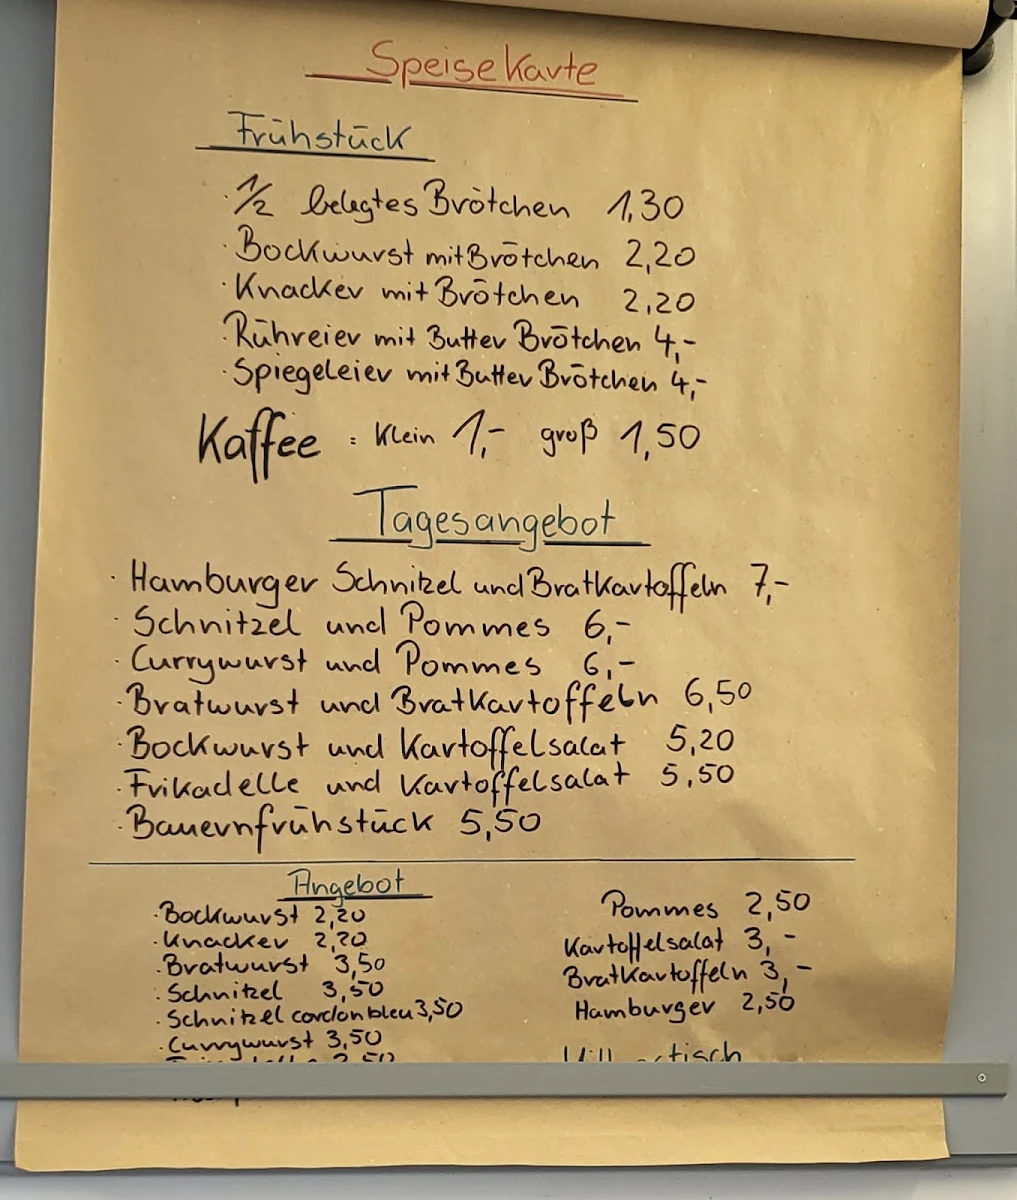 Speisekarte
Frühstück
· 1/2 belegtes Brötchen 1,30
· Bockwurst mit Brötchen 2,20
· Knacker mit Brötchen 2,20
· Rühreier mit Butter Brötchen 4,-
· Spiegeleier mit Butter Brötchen 4,-
Kaffee : Klein 1,- groß 1,50
Tagesangebot
· Hamburger Schnitzel und Bratkartoffeln 7,-
· Schnitzel und Pommes 6,-
· Currywurst und Pommes 6,-
· Bratwurst und Bratkartoffeln 6,50
· Bockwurst und Kartoffelsalat 5,20
· Frikadelle und Kartoffelsalat 5,50
· Bauernfrühstück 5,50
Angebot
· Bockwurst 2,20
· Knacker 2,20
· Bratwurst 3,50
· Schnitzel 3,50
· Schnitzel cordon bleu 3,50
· Currywurst 3,50
Pommes 2,50
Kartoffelsalat 3,-
Bratkartoffeln 3,-
Hamburger 2,50